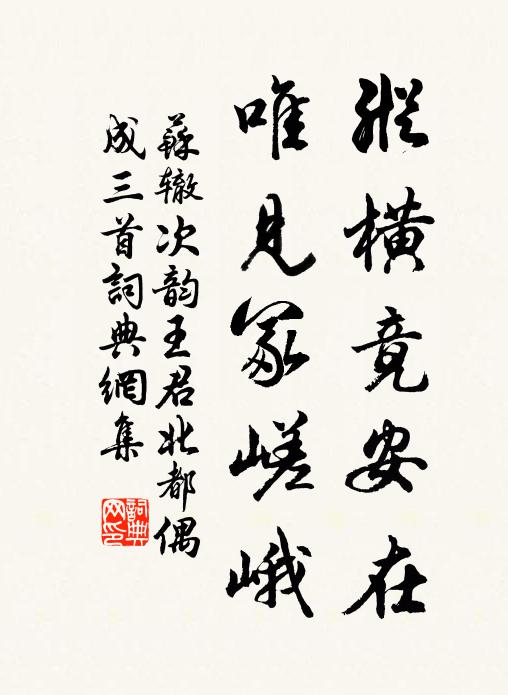 縱橫竟安在
唯見冢嵯峨
蘇辙次韵王君北都偶
成三首詞典網集
詞典网印